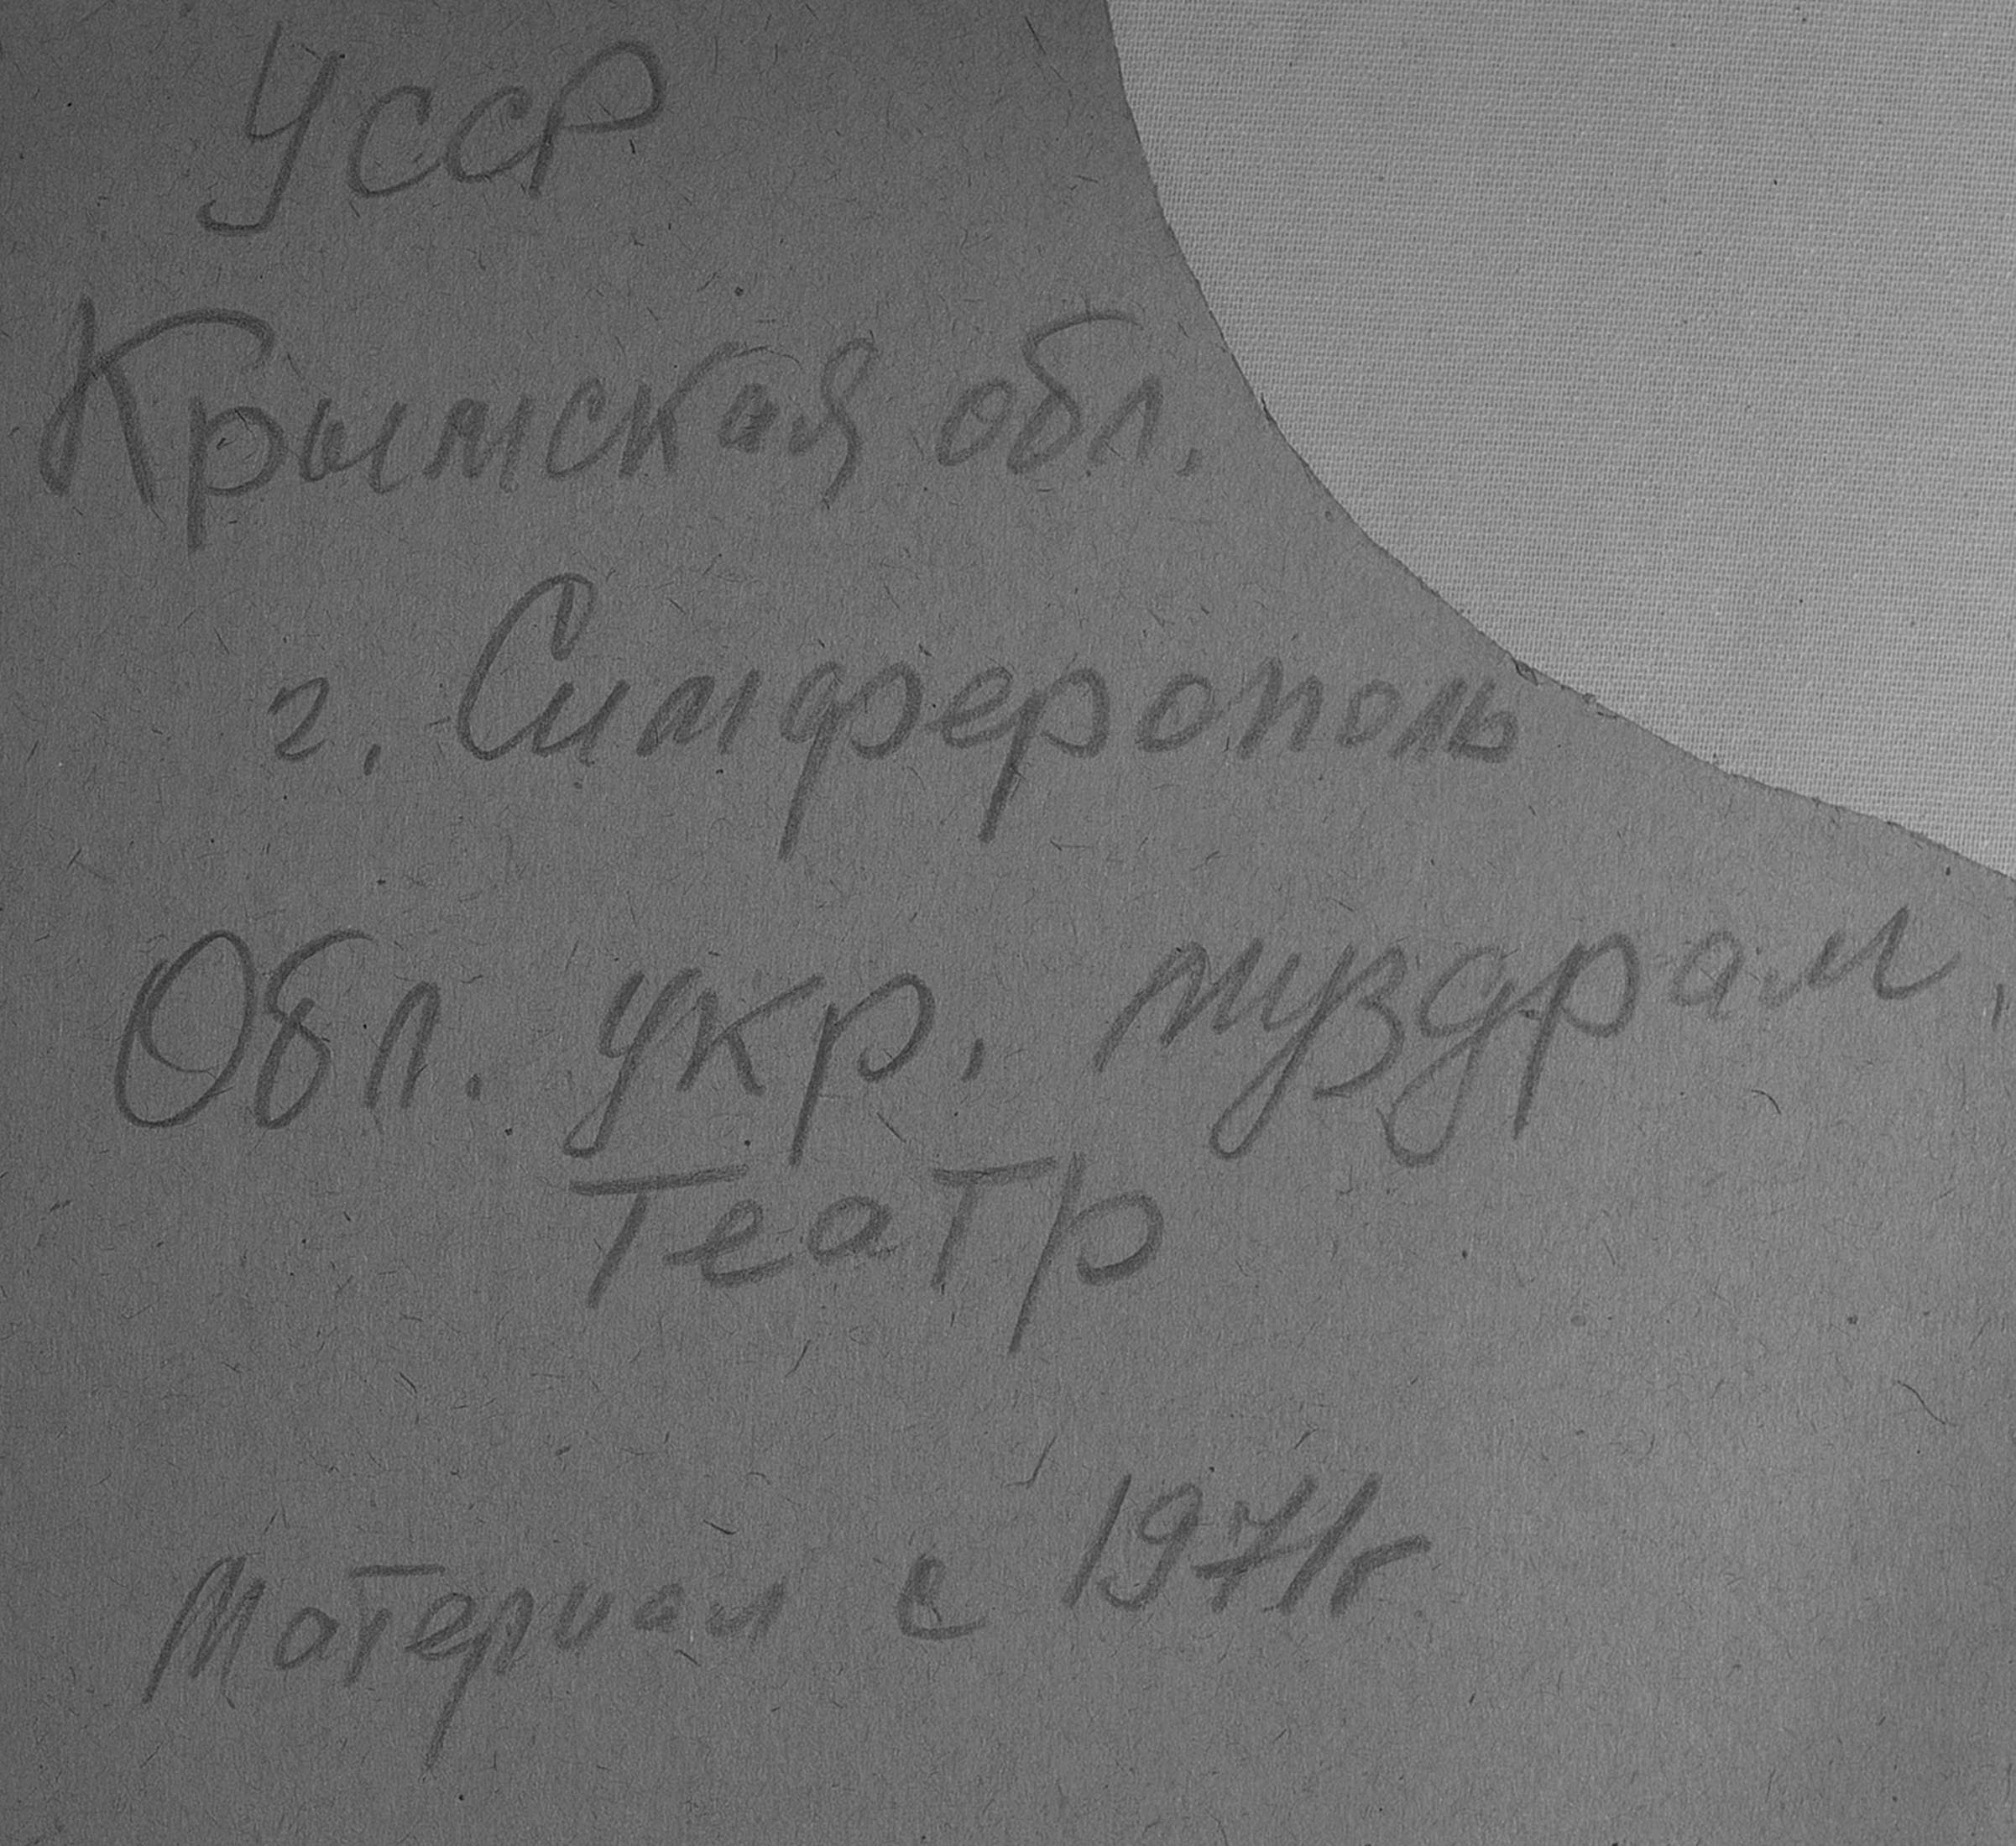 УССР
Крымская обл.
г. Симферополь
Обл. укр. муздрам.
театр
Материал с 1971г